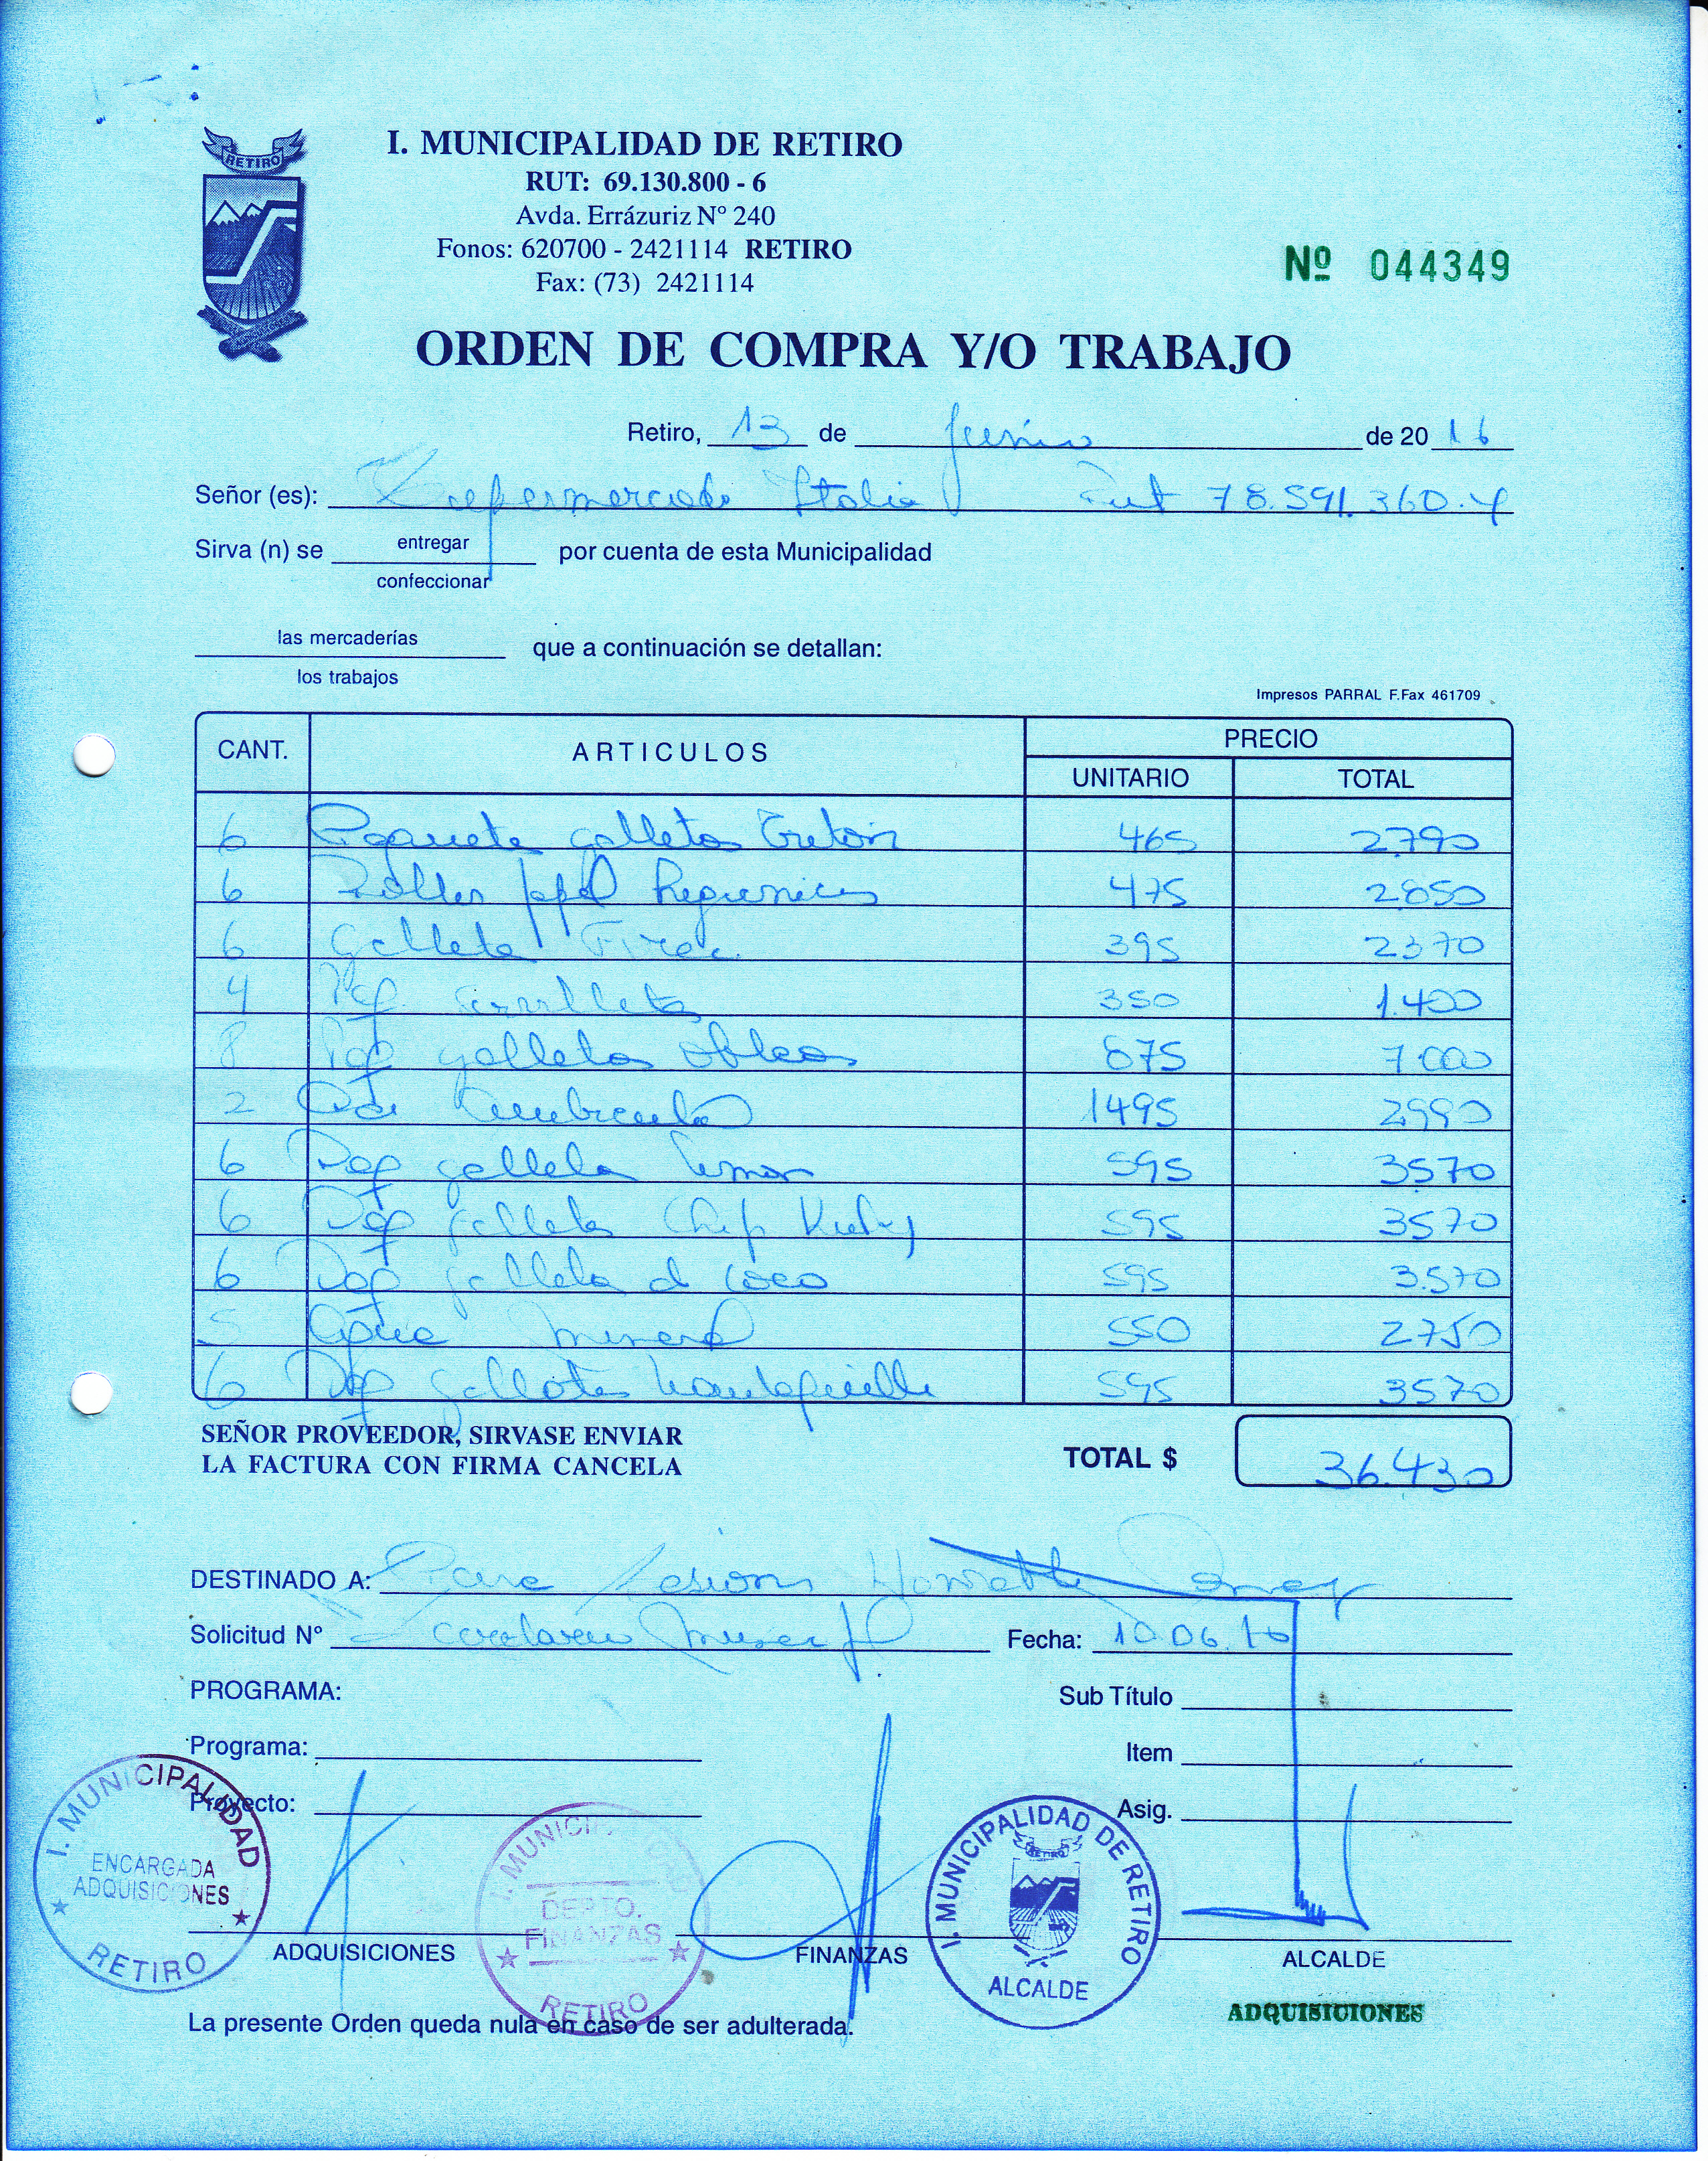 RETIRO
I. MUNICIPALIDAD DE RETIRO
RUT: 69.130.800 - 6
Avda. Errázuriz Nº 240
Fonos: 620700 - 2421114 RETIRO
Fax: (73) 2421114
Nº 044349
ORDEN DE COMPRA Y/O TRABAJO
Retiro, 13 de Junio de 20 16
Señor (es): Supermercado Italia Rut 78.591.360.4
Sirva (n) se entregar por cuenta de esta Municipalidad
confeccionar
las mercaderías que a continuación se detallan:
los trabajos
Impresos PARRAL F.Fax 461709
CANT. ARTICULOS PRECIO
UNITARIO TOTAL
6 Paquete galletas Triton 465 2790
6 papel higienico 475 2.850
6 Galleta 395 2370
4 Paq. servilletas 350 1.400
8 Paq galletas obleas 875 7.000
2 1495 2990
6 Paq galleta limon 595 3570
6 Paq galletas Chip 595 3570
6 Paq galleta d coco 595 3.570
5 Agua mineral 550 2750
6 Paq galletas mantequilla 595 3570
SEÑOR PROVEEDOR, SIRVASE ENVIAR
LA FACTURA CON FIRMA CANCELA
TOTAL $ 36.430
DESTINADO A: Para sesion Honorable
Solicitud Nº Fecha: 10.06.16
PROGRAMA:
Sub Título
Programa:
Item
Proyecto:
Asig.
I. MUNICIPALIDAD
ENCARGADA
ADQUISICIONES
RETIRO
I. MUNICIPALIDAD
DEPTO.
FINANZAS
RETIRO
I. MUNICIPALIDAD DE RETIRO
RETIRO
ALCALDE
ADQUISICIONES FINANZAS ALCALDE
ADQUISICIONES
La presente Orden queda nula en caso de ser adulterada.